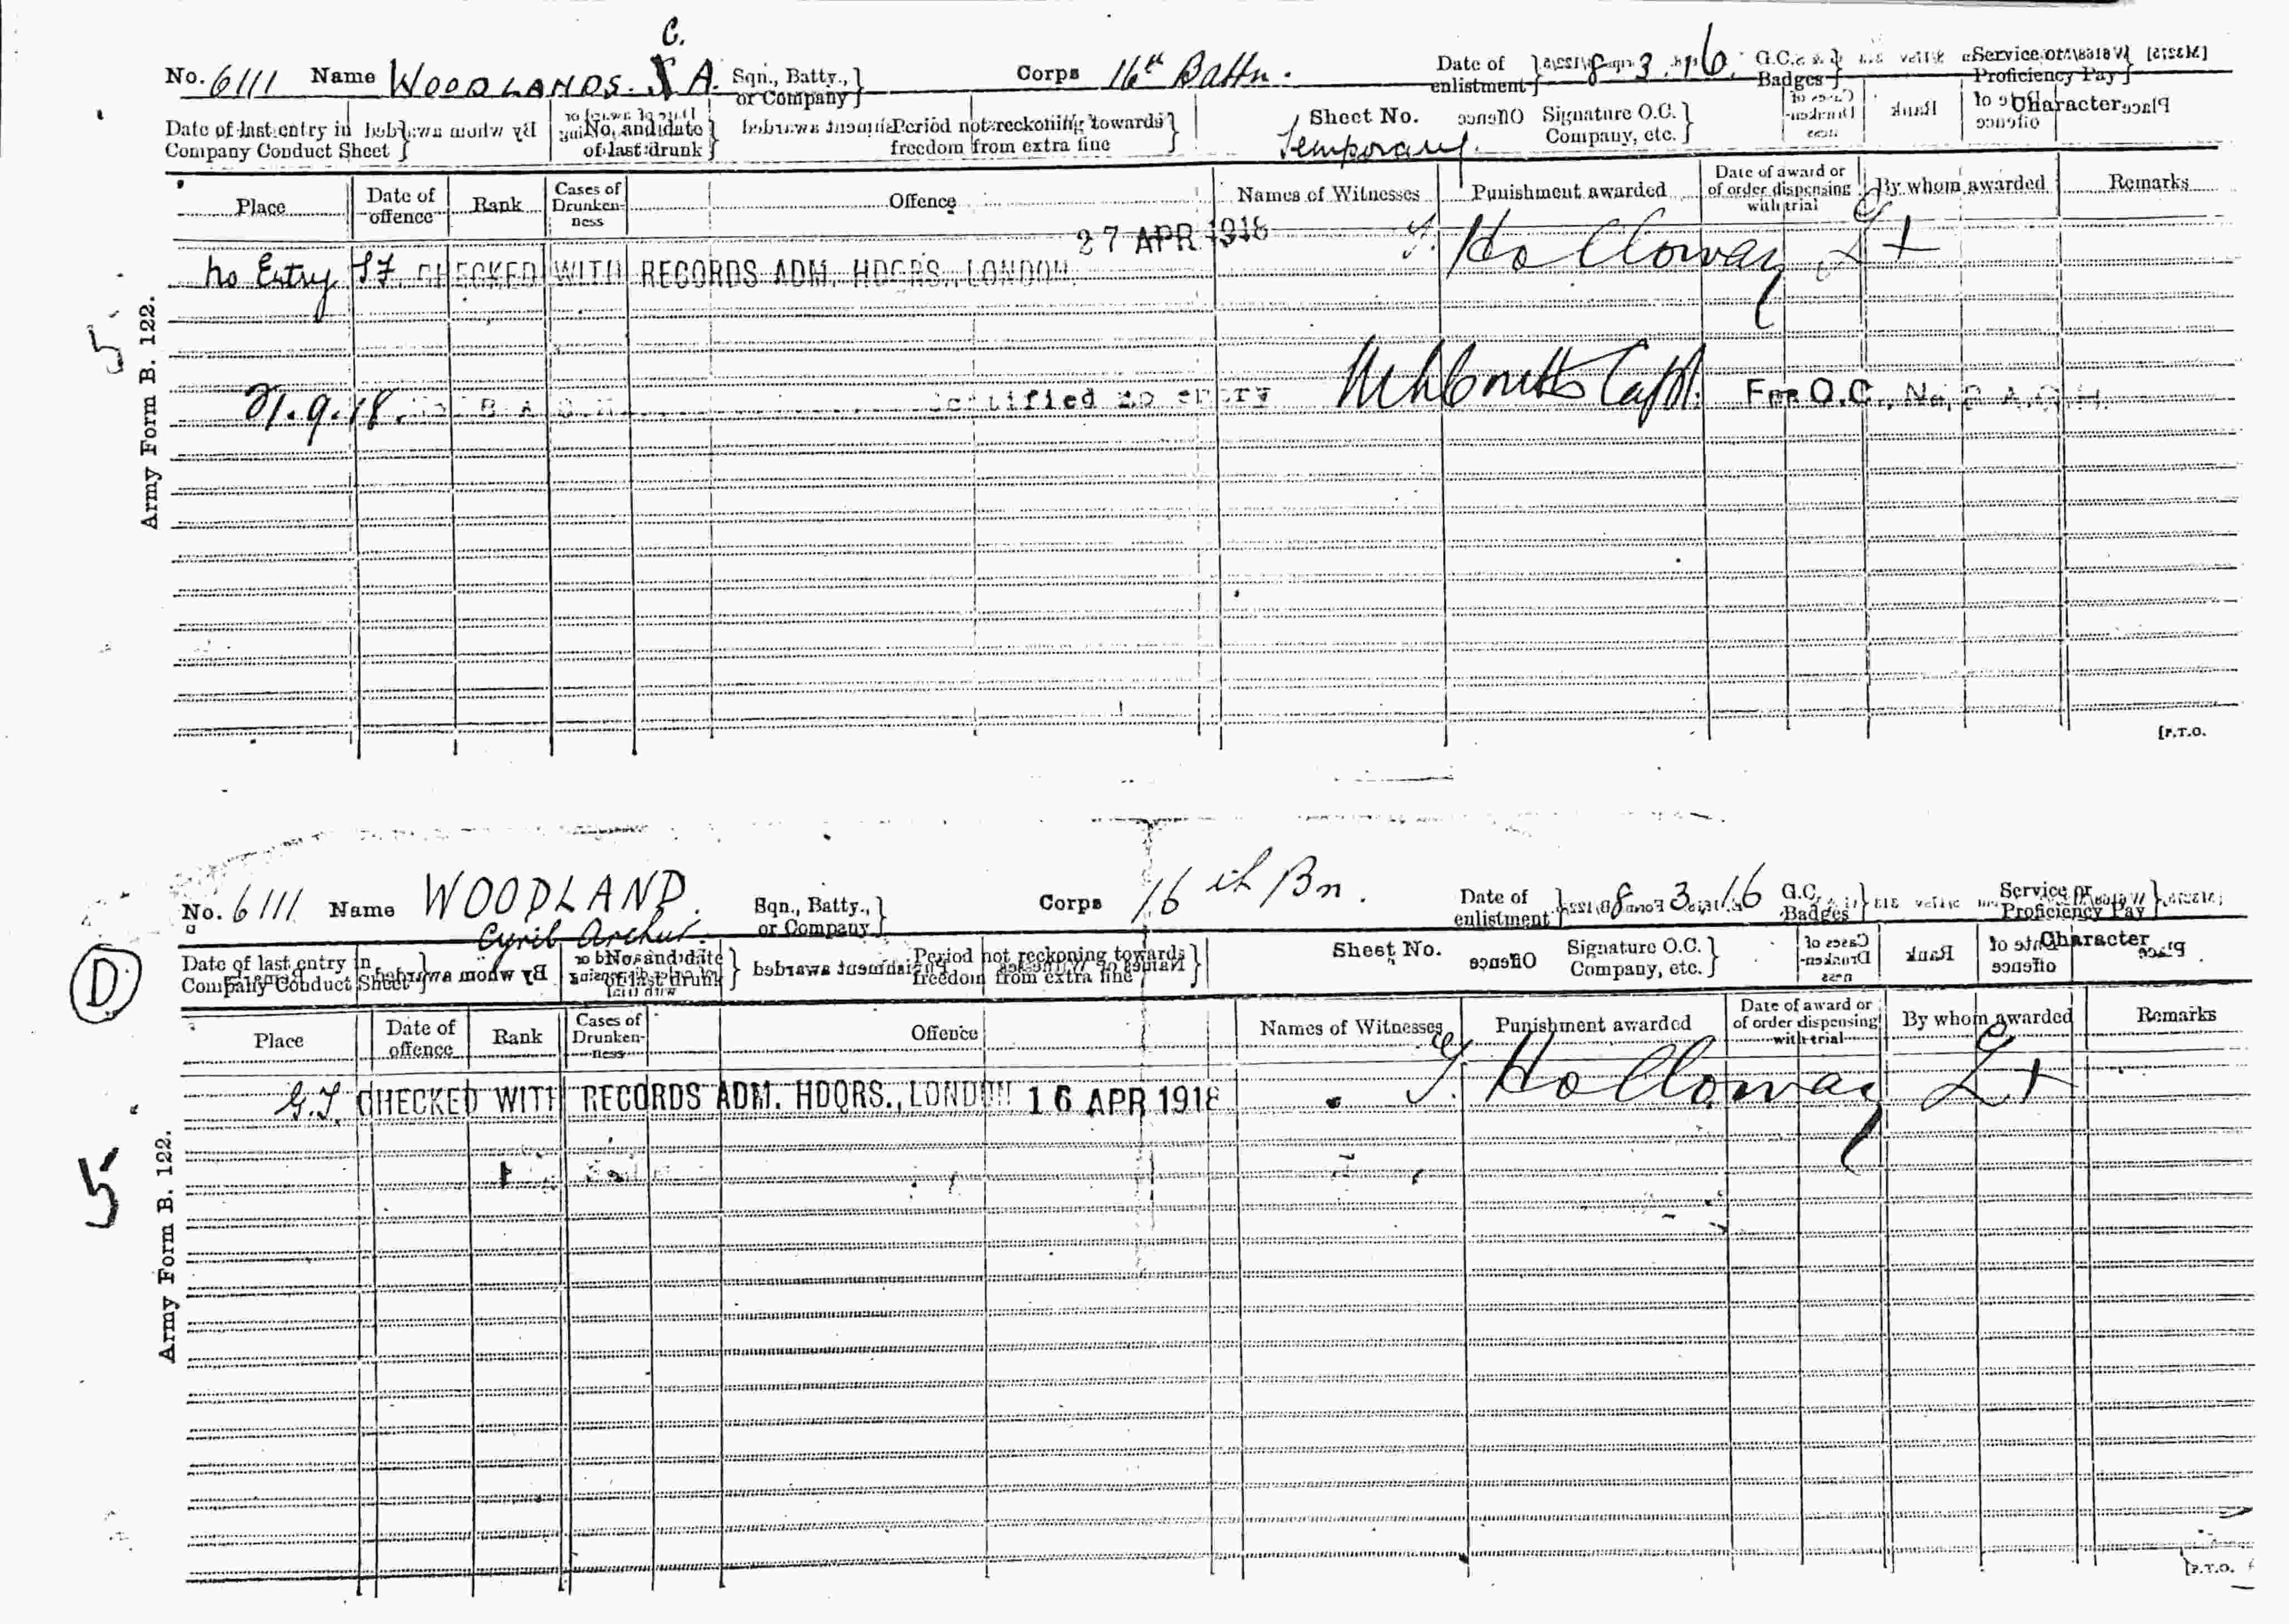 C.
No. 6111 Name WOODLANDS. A. Sqn., Batty., or Company} Corps 16th Battn. Date of enlistment} 8.3.16. G.C. Badges} Service or Proficiency Pay}
Date of last entry in Company Conduct Sheet} No. and date of last drunk} Period not reckoning towards freedom from extra fine} Sheet No. Temporary. Signature O.C. Company, etc.} Character
Place Date of offence Rank Cases of Drunken-ness Offence Names of Witnesses Punishment awarded Date of award or of order dispensing with trial By whom awarded Remarks
27 APR 1918
No Entry CHECKED WITH RECORDS ADM. HDQRS., LONDON Holloway Lt
21.9.18. Certified no entry Capt. For O.C., No.
Army Form B. 122.
5
[P.T.O.
No. 6111 Name WOODLAND. Sqn., Batty., or Company} Corps 16th Bn. Date of enlistment} 8.3.16 G.C. Badges} Service or Proficiency Pay}
Cyril Archer.
Date of last entry in Company Conduct Sheet} No. and date of last drunk} Period not reckoning towards freedom from extra fine} Sheet No. Signature O.C. Company, etc.} Character
D
Place Date of offence Rank Cases of Drunken-ness Offence Names of Witnesses Punishment awarded Date of award or of order dispensing with trial By whom awarded Remarks
CHECKED WITH RECORDS ADM. HDQRS., LONDON 16 APR 1918 Holloway Lt
Army Form B. 122.
5
[P.T.O.